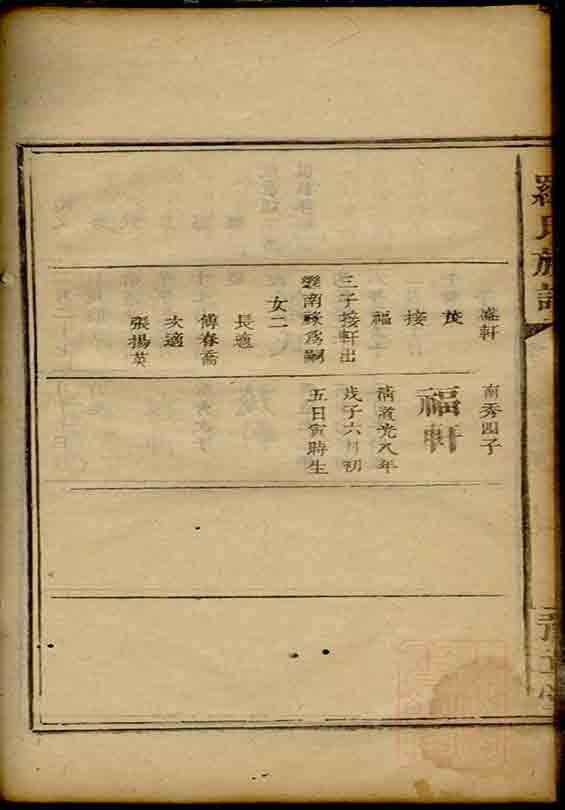 羅氏族譜
瀛軒
茂
接
福
三子接軒出
繼南祿爲嗣
女二
長適
傅春喬
次適
張揚英
南秀四子
福軒
清道光八年
戊子六月初
五日寅時生